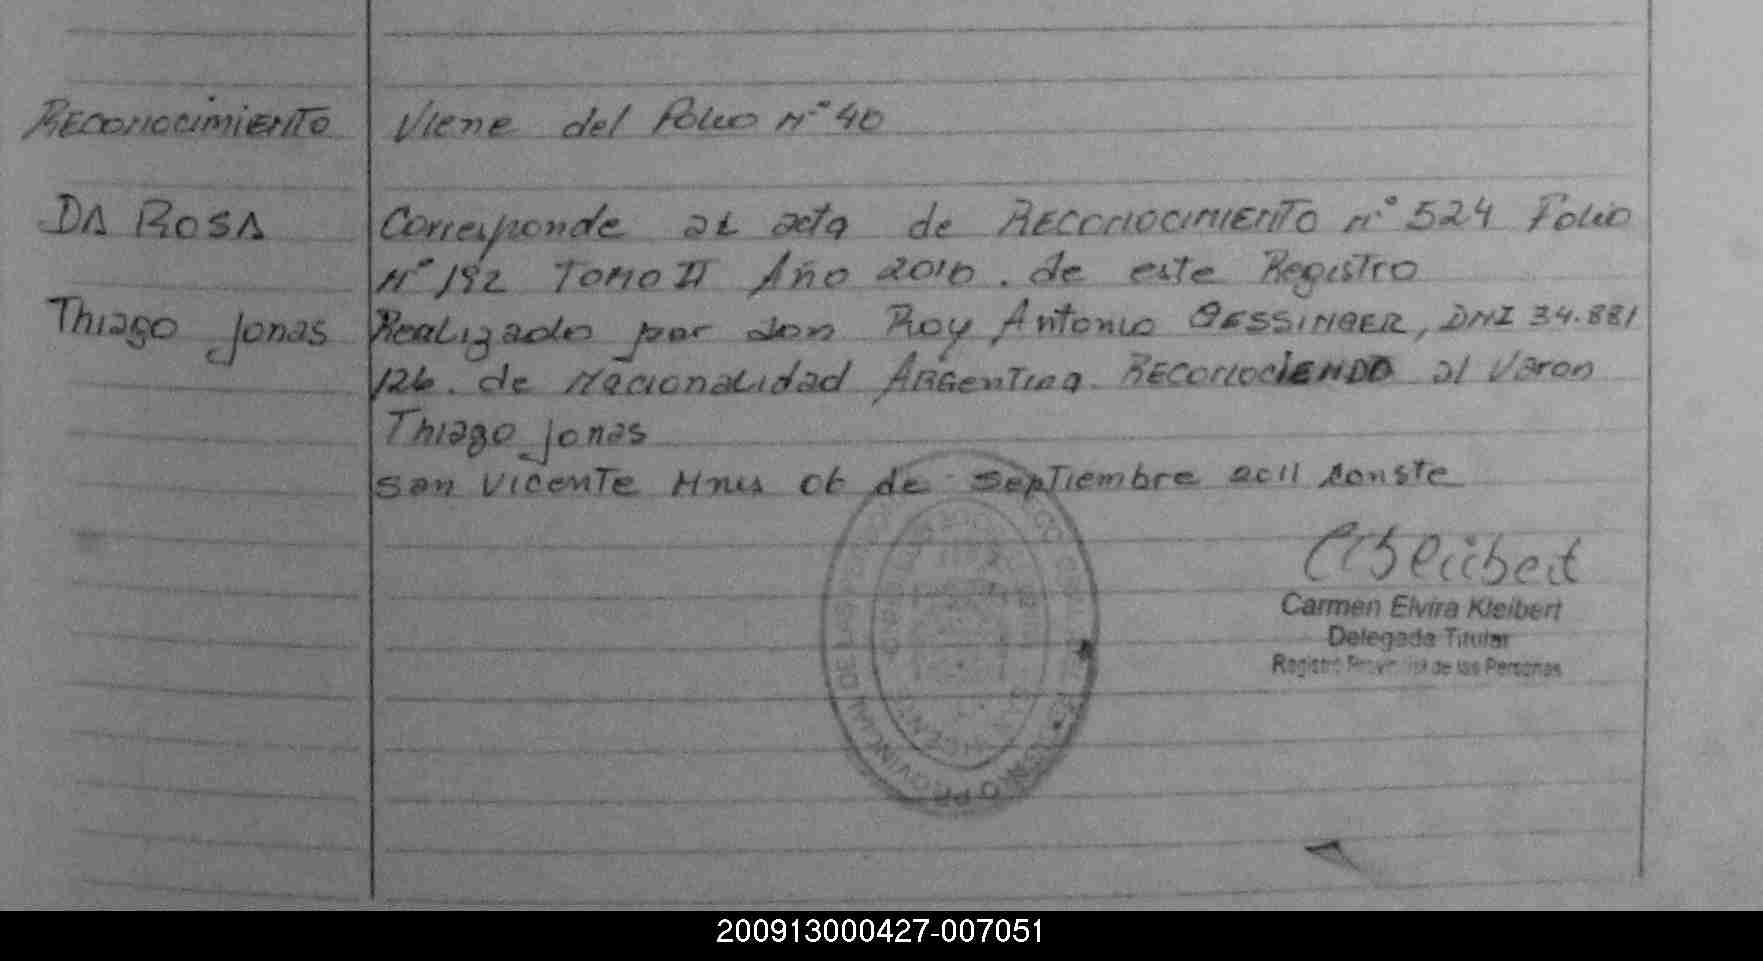 Reconocimiento
Viene del Folio Nº 40
DA ROSA
Thiago Jonas
Corresponde al acta de Reconocimiento Nº 524 Folio
Nº 192 Tomo II Año 2010. de este Registro
Realizado por don Roy Antonio GESSINGER, DNI 34.881
126. de Nacionalidad Argentina. Reconociendo al Varon
Thiago Jonas
San Vicente Mnes 06 de Septiembre 2011 Conste
Carmen Elvira Kleibert
Delegada Titular
Registro Provincial de las Personas
200913000427-007051